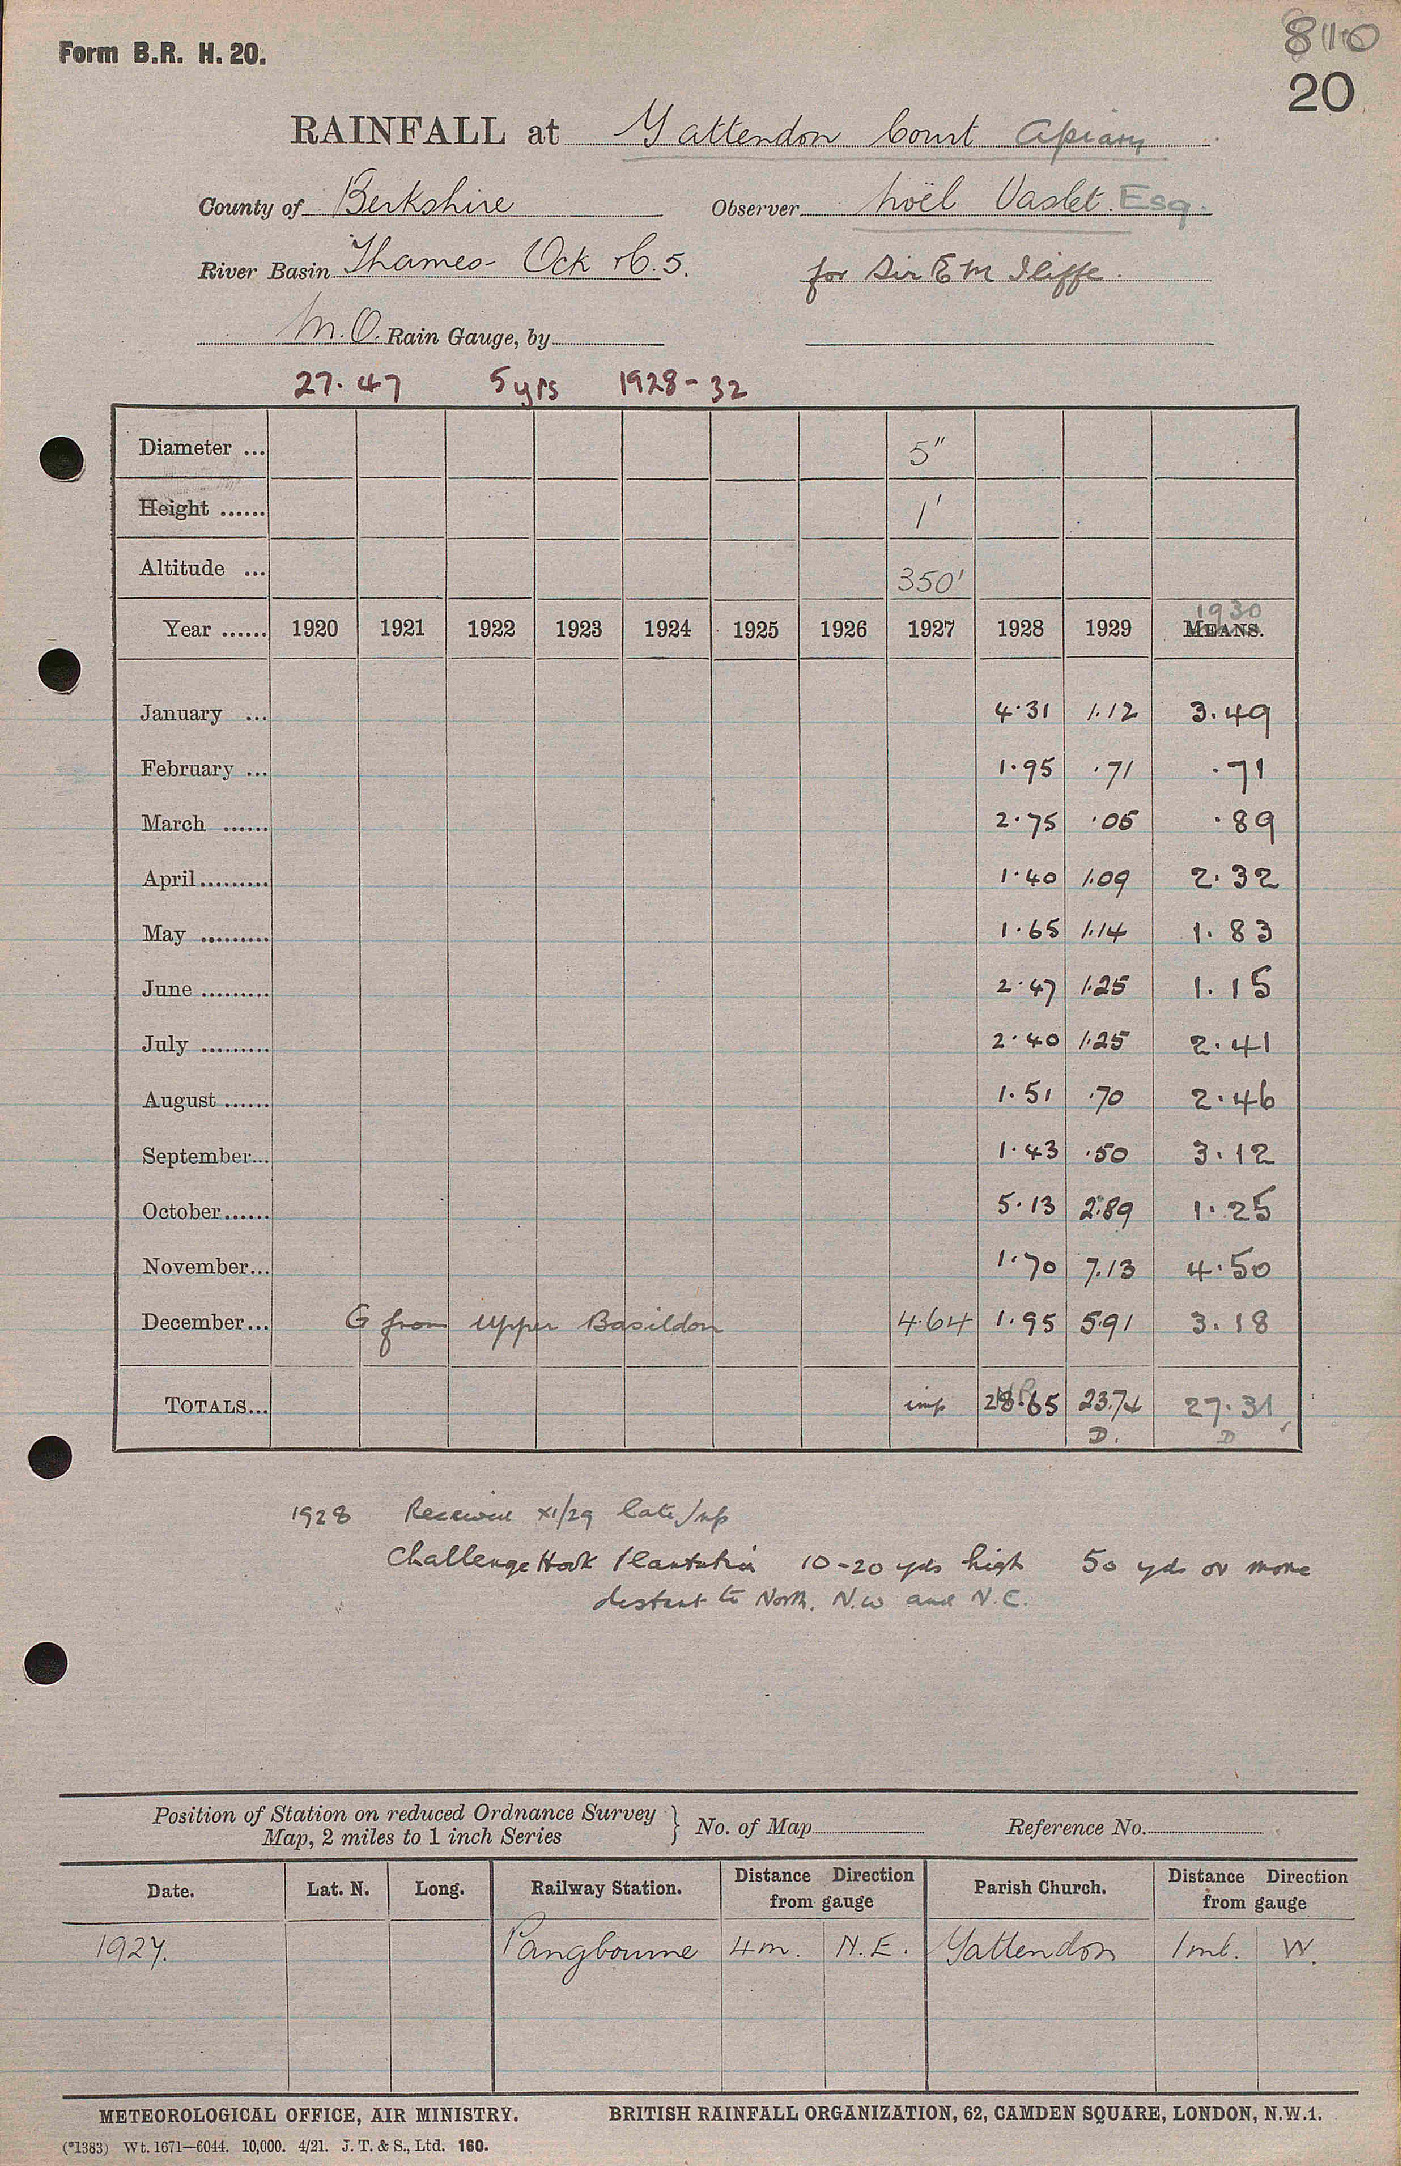 Form B.R. H. 20.
20
RAINFALL at Yattendon Court Apiary
County of Berkshire Observer Noël Vaslet Esq.
River Basin Thames - Ock 5. for Sir E M Iliffe.
M.O. Rain Gauge, by
27.47 5 yrs 1928-32
Diameter ... 5"
Height ...... 1'
Altitude ... 350'
1930
Year ...... 1920 1921 1922 1923 1924 1925 1926 1927 1928 1929 MEANS.
January ... 4.31 1.12 3.49
February ... 1.95 .71 .71
March ...... 2.75 .05 .89
April......... 1.40 1.09 2.32
May ......... 1.65 1.14 1.83
June ......... 2.47 1.25 1.15
July ......... 2.40 1.25 2.41
August ...... 1.51 .70 2.46
September... 1.43 .50 3.12
October...... 5.13 2.89 1.25
November... 1.70 7.13 4.50
December... G from Upper Basildon 4.64 1.95 5.91 3.18
TOTALS... imp 28.65 23.74 27.31
D. D
1928 Received XI/29 late
Challenge Plantation 10-20 yds high 50 yds or more
distant to North, N.W and N.E.
Position of Station on reduced Ordnance Survey
Map, 2 miles to 1 inch Series } No. of Map Reference No.
Date. Lat. N. Long. Railway Station. Distance Direction from gauge Parish Church. Distance Direction from gauge
1927. Pangbourne 4m. N.E. Yattendon 1ml. W.
METEOROLOGICAL OFFICE, AIR MINISTRY. BRITISH RAINFALL ORGANIZATION, 62, CAMDEN SQUARE, LONDON, N.W.1.
(*1383) Wt. 1671—6044. 10,000. 4/21. J. T. & S., Ltd. 160.